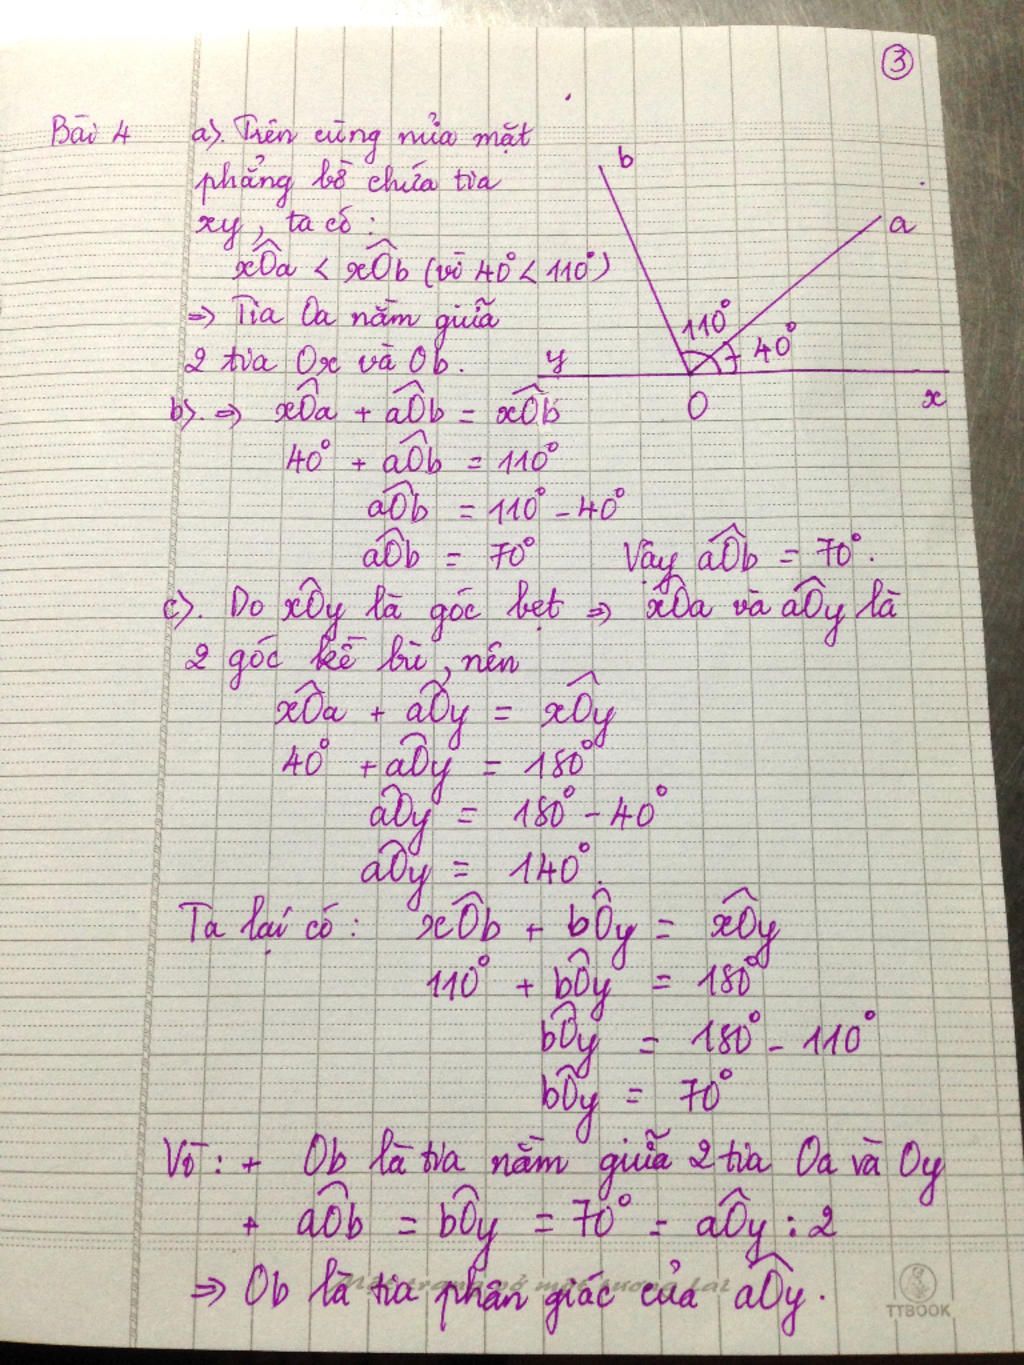 ③
Bài 4 a). Trên cùng nửa mặt
phẳng bờ chứa tia
xy, ta có:
xÔa < xÔb (vì 40° < 110°)
⇒ Tia Oa nằm giữa
2 tia Ox và Ob.
b
a
110°
40°
y
O
x
b). ⇒ xÔa + aÔb = xÔb
40° + aÔb = 110°
aÔb = 110° - 40°
aÔb = 70° Vậy aÔb = 70°.
c). Do xÔy là góc bẹt ⇒ xÔa và aÔy là
2 góc kề bù, nên
xÔa + aÔy = xÔy
40° + aÔy = 180°
aÔy = 180° - 40°
aÔy = 140°.
Ta lại có: xÔb + bÔy = xÔy
110° + bÔy = 180°
bÔy = 180° - 110°
bÔy = 70°
Vì: + Ob là tia nằm giữa 2 tia Oa và Oy
+ aÔb = bÔy = 70° = aÔy : 2
⇒ Ob là tia phân giác của aÔy.
TTBOOK